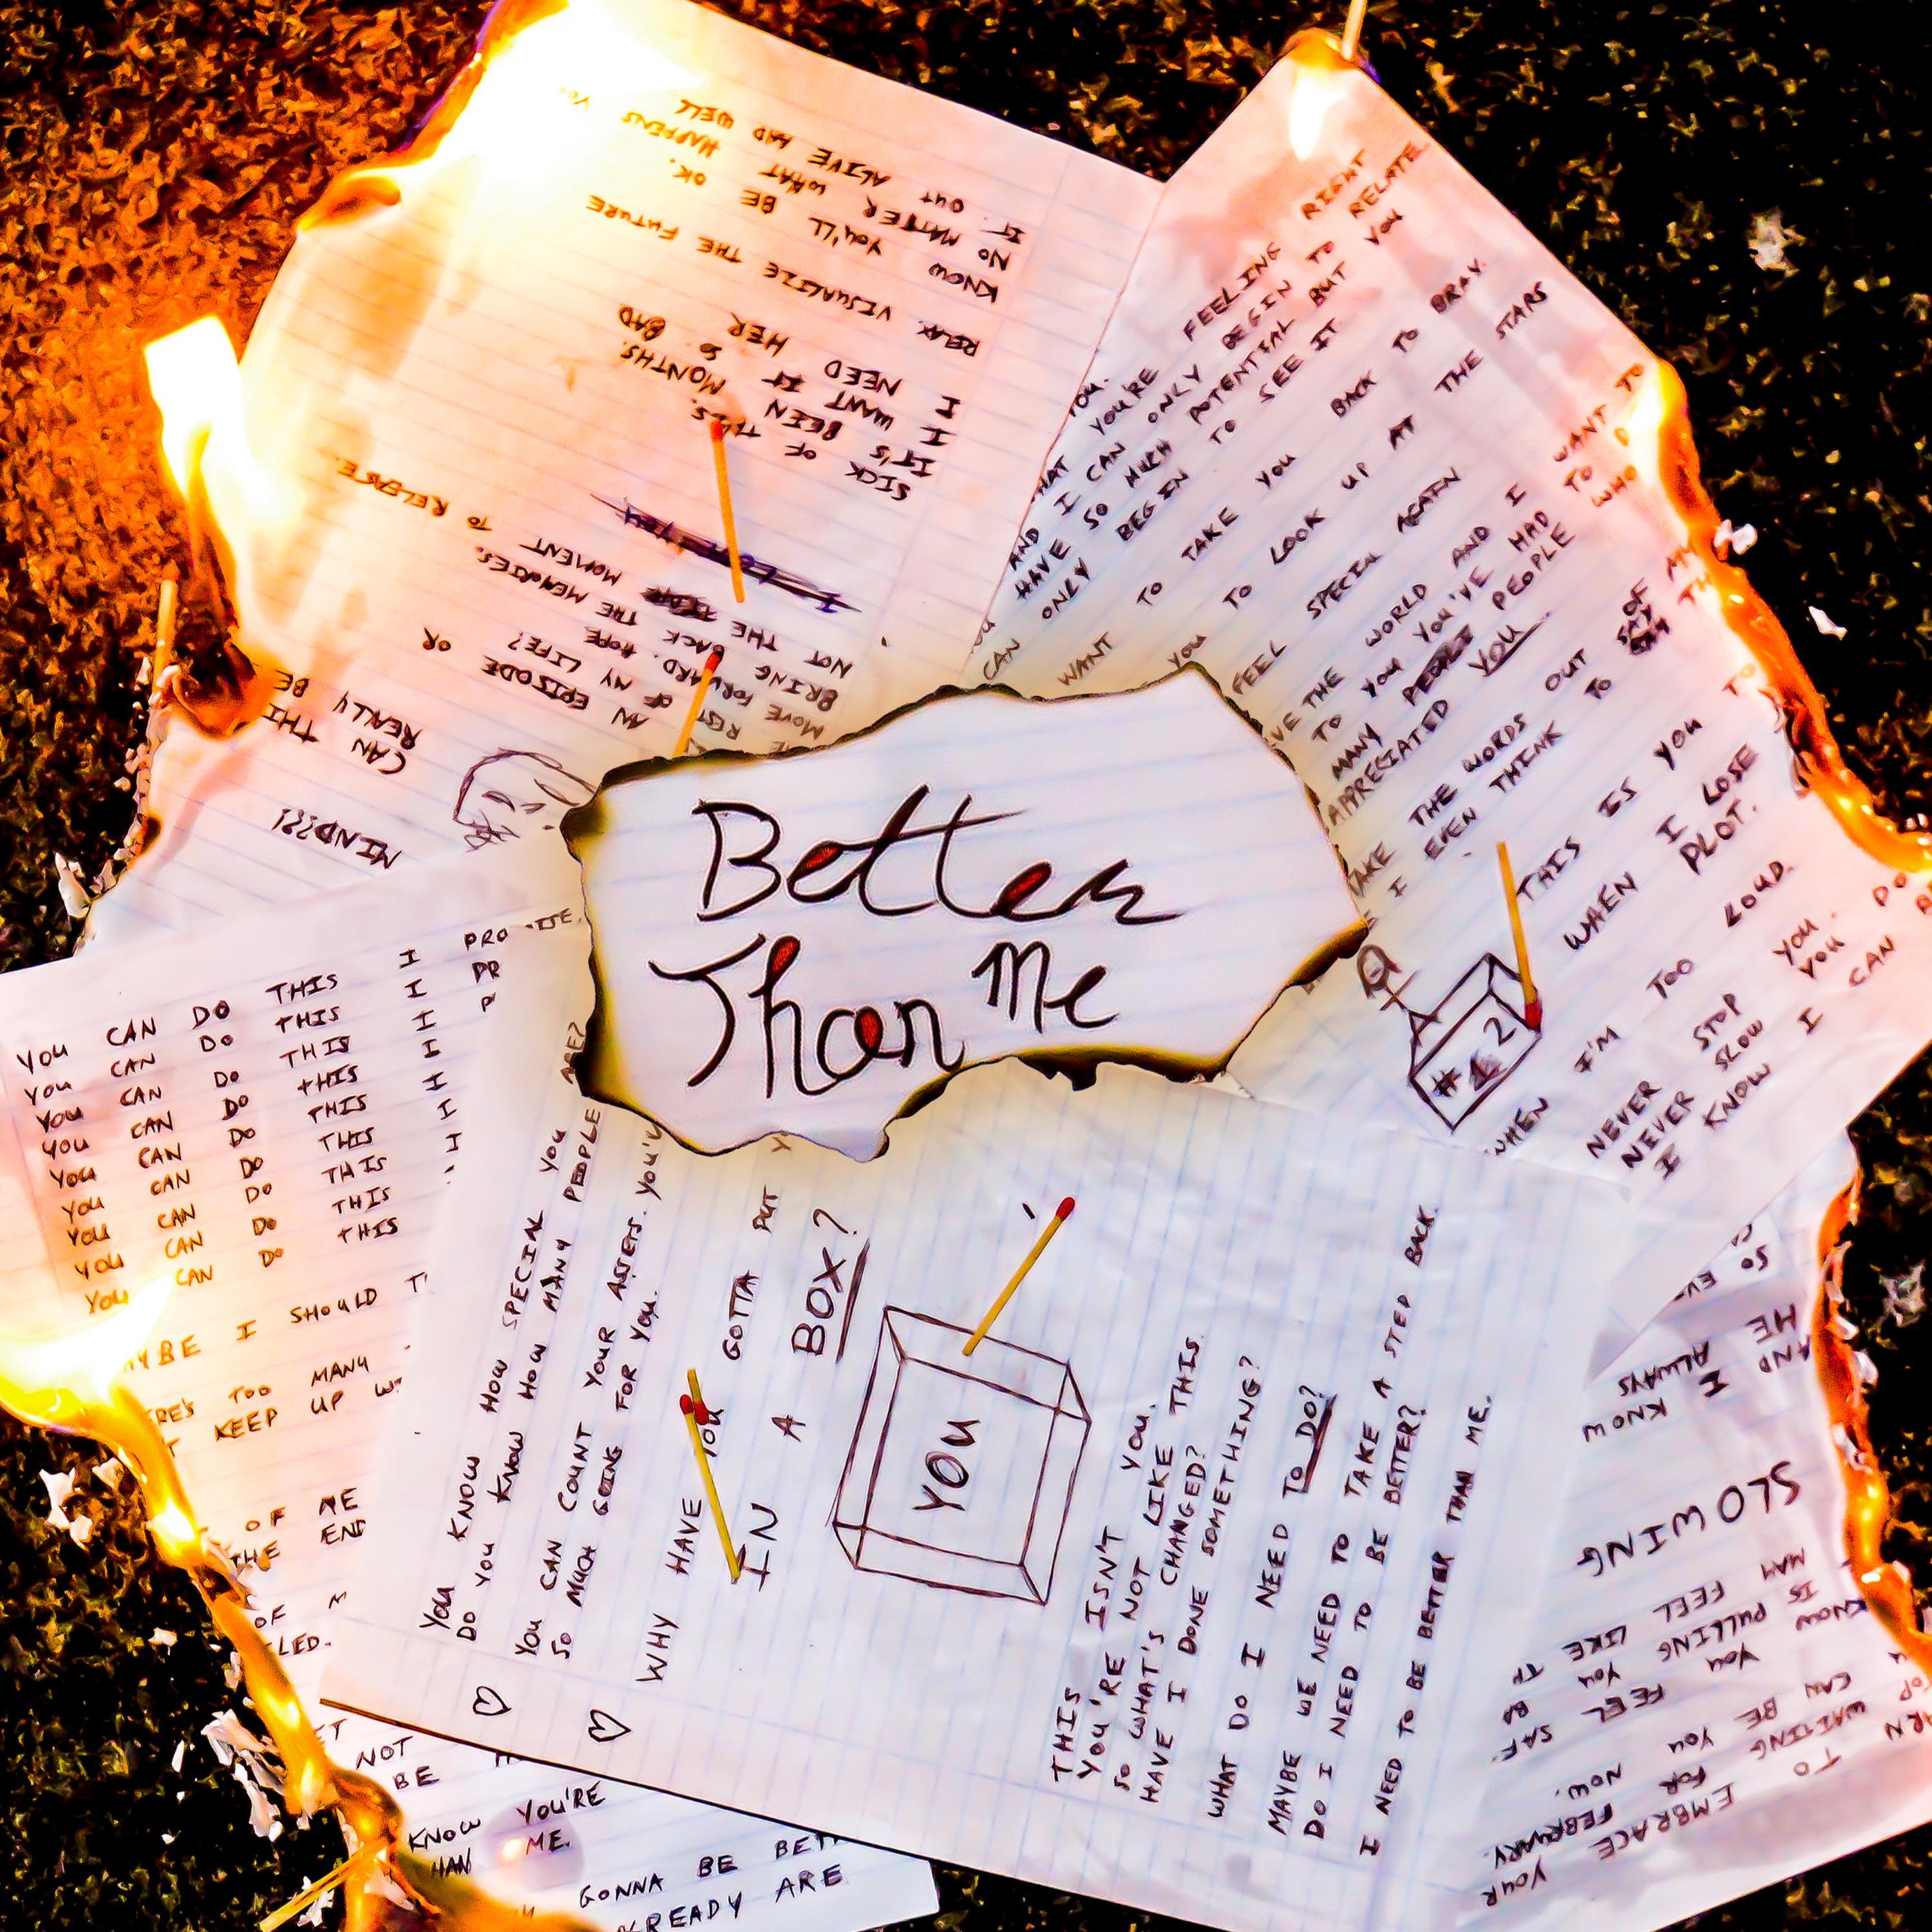 Better
Than Me
IT OUT ALIVE AND WELL
NO MATTER WHAT HAPPENS
KNOW YOU'LL BE OK.
RELAX. VISUALIZE THE FUTURE
I NEED HER
I WANT IT SO BAD
IT'S BEEN MONTHS.
SICK OF THIS.
NOT THE MOMENT TO RELEASE.
BRING BACK THE MEMORIES.
MOVE FORWARD. HOPE
REST OF MY LIFE?
AN EPISODE OR
CAN THI
REALLY BE
MIND???!
YOU.
HAT YOU'RE FEELING RIGHT
AND I CAN ONLY BEGIN TO RELATE
HAVE SO MUCH POTENTIAL BUT YOU
CAN ONLY BEGIN TO SEE IT
WANT TO TAKE YOU BACK TO BRAY.
YOU TO LOOK UP AT THE STARS
FEEL SPECIAL AGAIN
VE THE WORLD AND I WANT TO
TO YOU YOU'VE HAD TO
MANY PEOPLE PEOPLE WHO
APPRECIATED YOU
TAKE THE WORDS OUT OF MY
E I EVEN THINK TO SAY TH
THIS IS YOU TO
WHEN I LOSE
PLOT.
#1 2
WHEN I'M TOO LOUD.
NEVER STOP YOU. DO
NEVER SLOW YOU
I KNOW I CAN
YOU CAN DO THIS I PROMISE.
YOU CAN DO THIS I PR
YOU CAN DO THIS I P
YOU CAN DO THIS I
YOU CAN DO THIS I
YOU CAN DO THIS I
YOU CAN DO THIS I
YOU CAN DO THIS
YOU CAN DO THIS
YBE I SHOULD T
ERE'S TOO MANY
T KEEP UP W
OF ME
THE END
OF M
LED.
YOU KNOW HOW SPECIAL YOU ARE?
DO YOU KNOW HOW MANY PEOPLE
YOU CAN COUNT YOUR ASSETS. YOU'V
SO MUCH GOING FOR YOU.
WHY HAVE YOU GOTTA PUT Y
IN A BOX?
YOU
THIS ISN'T YOU.
YOU'RE NOT LIKE THIS.
SO WHAT'S CHANGED?
HAVE I DONE SOMETHING?
WHAT DO I NEED TO DO?
MAYBE WE NEED TO TAKE A STEP BACK.
DO I NEED TO BE BETTER?
I NEED TO BE BETTER THAN ME.
NOT
BE
KNOW YOU'RE
HAN ME.
GONNA BE BETT
ALREADY ARE
SO EV
AND HE
I ALWAYS
KNOW
SLOWING
MAY FEEL LIKE TH
KNOW IS PULLING YOU
YOU FEEL SAF
CAN BE YOU NOW.
WAITING FOR FEBRUARY.
TO EMBRACE YOUR